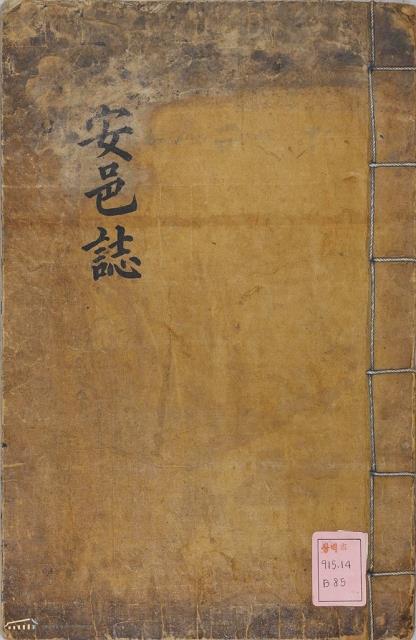 安邑誌
915.14
B 85